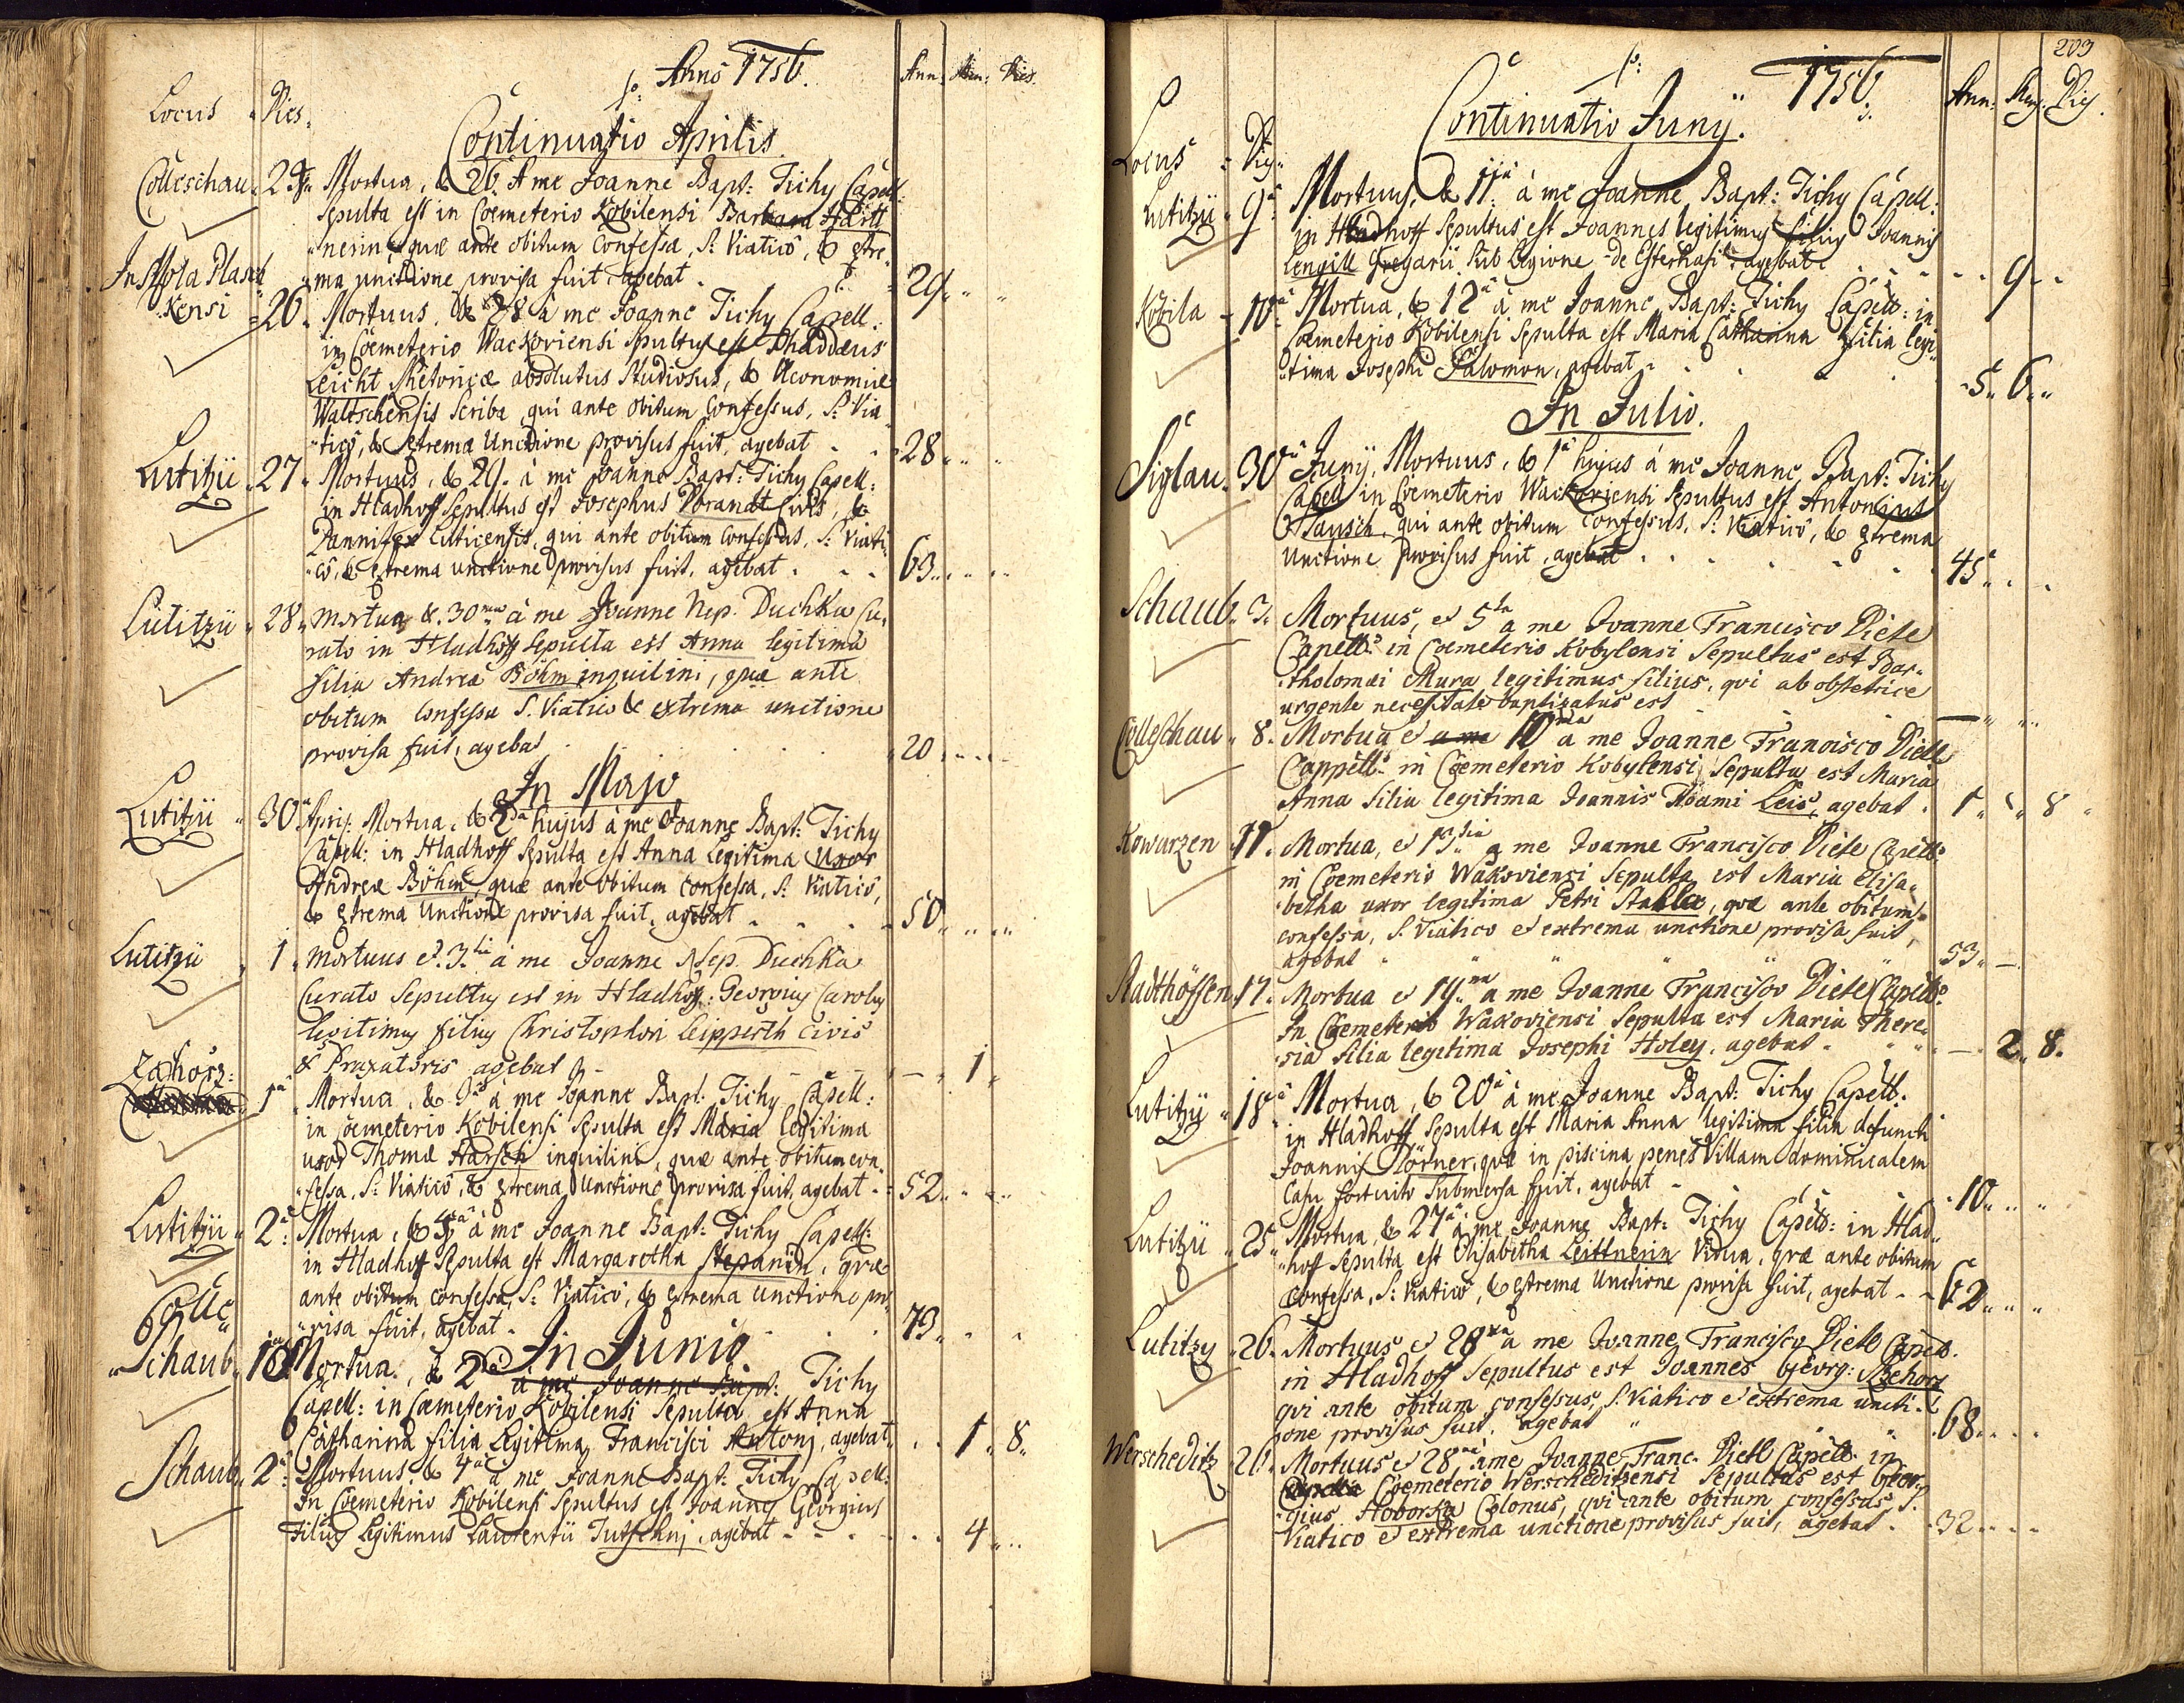 Anno 1756.
Locus Dies. Ann: Men: Dies.
Continuatio Aprilis
Colleschau 24 Mortua, & 26. A me Joanne Bapt: Tichy Capell:
Sepulta est in Coemeterio Kobilensi Barbara Hartt
nerin, quae ante obitum Confessa, S: Viatico, & extre-
ma unctione provisa fuit agebat 29
In Mola Plasch
Kensi 26. Mortuus, & 28 à me Joanne Tichy Capell:
in Coemeterio Wackoviensi Sepultus est Thaddaeus
Leicht Rhetoricae absolutus Studiosus, & Oeconomiae
Waltschensis Scriba, qui ante obitum Confessus, S: Via
tico, & extrema Unctione provisus fuit, agebat 28
Lutitzii 27 Mortuus, & 29. à me Joanne Bapt: Tichy Capell:
in Hladhoff Sepultus est Josephus Vorandt Civis, &
Pannifex Luticensis, qui ante obitum Confessus, S: Viati-
co, & extrema unctione provisus fuit, agebat 63
Lutitzii 28 Mortua & 30 à me Joanne Nep. Duchka Cu-
rato in Hladhoff Sepulta est Anna legitima
filia Andreae Böhm inquilini, quae ante
obitum Confessa S. Viatico & extrema unctione
provisa fuit, agebat 20
In Majo
Lutitzii 30 April: Mortua, & 2da hujus à me Joanne Bapt: Tichy
Capell: in Hladhoff Sepulta est Anna Legitima Uxor
Andreae Böhm, quae ante obitum Confessa, S: Viatico,
& extrema Unctione provisa fuit, agebat 50
Lutitzii 1 Mortuus & 3tia à me Joanne Nep. Duchka
Curato Sepultus est in Hladhoff: Georgius Carolus
legitimus filius Christophori Leipperth Civis
& Praxatoris agebat 1
Zahorz: 1a Mortua, & 3a à me Joanne Bapt. Tichy Capell:
in Coemeterio Kobilensi Sepulta est Maria legitima
uxor Thomae Harsch inquilini, quae ante obitum con
fessa, S: Viatico, & extrema Unctione provisa fuit, agebat 52
Lutitzii 2a Mortua, & à me Joanne Bapt: Tichy Capell:
in Hladhoff Sepulta est Margaretha Stepanin, quae
ante obitum confessa, S: Viatico, & extrema unctione pro
visa fuit, agebat 73
In Junio
Colle
Schau 1a Mortua, & 2da à me Joanne Bapt: Tichy
Capell: in Coemeterio Kobilensi Sepulta est Anna
Catharina filia Legitima Francisci Antonj, agebat 1 8
Schaub 2a Mortuus, & 4a à me Joanne Bapt: Tichy Capell:
In Coemeterio Kobilensi Sepultus est Joannes Georgius
Filius Legitimus Laurentii Tutschnj, agebat 4
203
1756
Continuatio Junij.
Locus Dies Ann: Men: Dies.
Lutitzii 9a Mortuus, & 11a à me Joanne Bapt: Tichy Capell:
in Hladhoff Sepultus est Joannes legitimus filius Joannis
Lengill Gregarii Sub Legione de Esterhasi agebat 9
Kobila 10a Mortua, & 12a à me Joanne Bapt: Tichy Capell: in
Coemeterio Kobilensi Sepulta est Maria Catharina filia legi
tima Josephi Salomon, agebat 5 6
In Julio.
Siglau 30 Junij, Mortuus, & 1a hujus à me Joanne Bapt: Tichy
Capell in Coemeterio Wackoviensi Sepultus est Antonius
Tausch, qui ante obitum Confessus, S: Viatico, & extrema
Unctione provisus fuit, agebat 45
Schaub 3. Mortuus, et 5ta a me Joanne Francisco Diete
Capell: in Coemeterio Kobylensi Sepultus est Bar-
tholomaei Mura legitimus filius, qui ab obstetrice
urgente necessitate baptizatus est
Colleschau 8. Mortua et a me 10ma a me Joanne Francisco Diete
Cappell: in Coemeterio Kobylensi Sepulta est Maria
Anna filia legitima Joannis Adami Leis, agebat 1 8
Kowarzen 11. Mortua, et 13tia a me Joanne Francisco Diete Capell:
in Coemeterio Wakoviensi Sepulta est Maria Elisa-
betha uxor legitima Petri Stahla, quae ante obitum
confessa, S. Viatico et extrema unctione provisa fuit,
agebat 53
Radthöffen 17. Mortua et 19na a me Joanne Francisco Diete Capell:
In Coemeterio Wakoviensi Sepulta est Maria There-
sia filia legitima Josephi Holey, agebat 2 8.
Lutitzii 18a Mortua, & 20a à me Joanne Bapt: Tichy Capell:
in Hladhoff Sepulta est Maria Anna legitima filia defuncti
Joannis Dörner, quae in piscina penes Villam dominicalem
Casu fortuito Submersa fuit, agebat 10
Lutitzii 25 Mortua, & 27a à me Joanne Bapt: Tichy Capell: in Hlad-
hoff Sepulta est Elisabetha Leittnerin Vidua, quae ante obitum
Confessa, S: Viatico, & extrema Unctione provisa fuit, agebat 62
Lutitzy 26. Mortuus et 28 a me Joanne Francisco Diete Capell.
in Hladhoff Sepultus est Joannes Georg: Rzehorz
qui ante obitum confessus, S. Viatico et extrema uncti-
one provisus fuit, agebat 68
Werscheditz 26. Mortuus et 28 a me Joanne Franc. Diete Capell. in
Coemeterio Werscheditzensi Sepultus est Geor-
gius Hoborka Colonus, qui ante obitum confessus S.
Viatico et extrema unctione provisus fuit, agebat 32